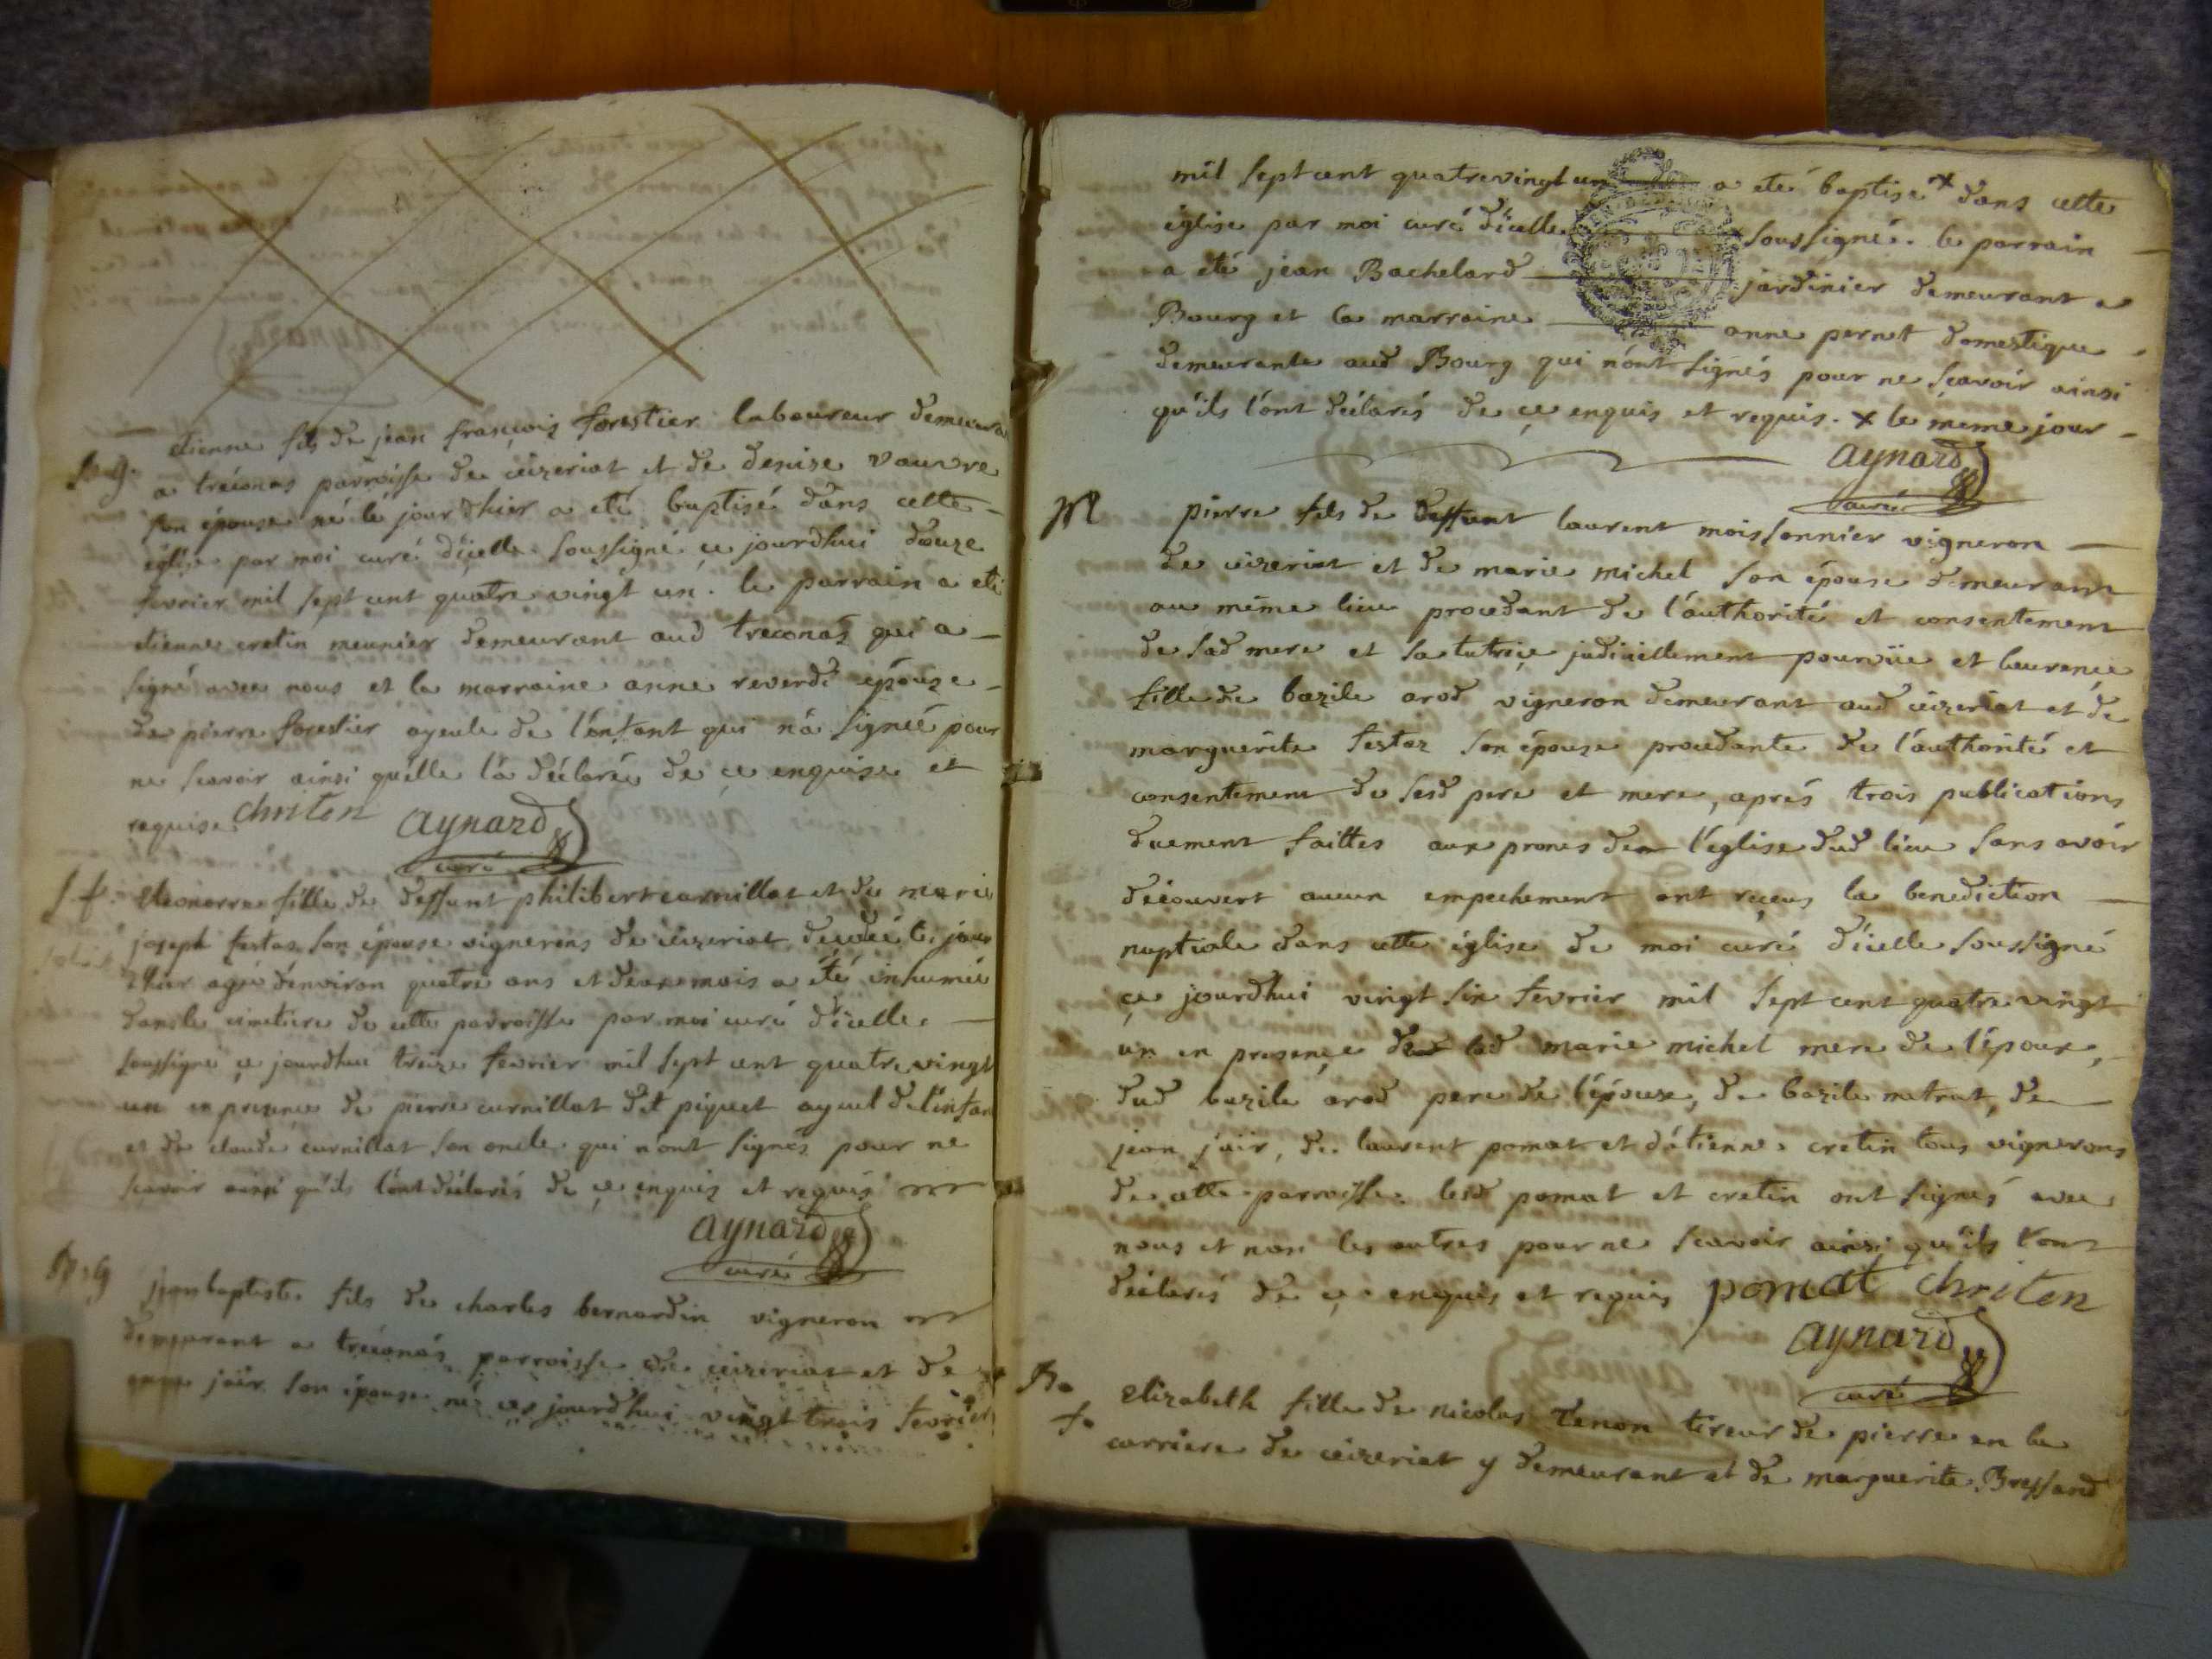 B. g. etienne fils de jean françois forestier laboureur demeurant
a treconas parroisse de ceizeriat et de denise vauvre
son épouse né le jour dhier a eté baptisé dans cette
église par moi curé d'icelle soussigné ce jourdhui douze
fevrier mil sept cent quatre vingt un. le parrain a eté
etienne cretin meunier demeurant aud treconas qui a
signé avec nous et la marraine anne reverdi épouse
de pierre forestier ayeule de l'enfant qui n'a signée pour
ne scavoir ainsi qu'elle l'a déclarée de ce enquise et
requise chriten aynard
curé
S. f. eleonorre fille de deffunt philibert curnillat et de marie
joseph festas son épouse vignerons de ceizeriat decedée le jour
dhier agée d'environ quatre ans et deux mois a été inhumée
dans le cimetiere de cette parroisse par moi curé d'icelle
soussigné ce jourdhui treize fevrier mil sept cent quatre vingt
un en presence de pierre curnillat dit piquet ayeul de l'enfant
et de claude curnillat son oncle qui n'ont signés pour ne
scavoir ainsi qu'ils l'ont déclarés de ce enquis et requis
aynard
curé
B. g jean baptiste fils de charles bernardin vigneron
demeurant a treconas parroisse de ceizeriat et de
jair son épouse né ce jourdhui vingt trois fevrier
mil sept cent quatre vingt un a eté baptisé x dans cette
église par moi curé d'icelle soussigné. le parrain
a eté jean Bachelard jardinier demeurant a
Bourg et la marraine anne pernet domestique
demeurante aud Bourg qui n'ont signés pour ne scavoir ainsi
qu'ils l'ont déclarés de ce enquis et requis. x le meme jour
aynard
curé
M pierre fils de deffunt laurent moissonnier vigneron
de ceizeriat et de marie michel son épouse demeurant
au même lieu procedant de l'authorité et consentement
de sad mere et sa tutrice judiciellement pourvüe et laurence
fille de bazile arod vigneron demeurant aud ceizeriat et de
marguerite festaz son épouse procedante de l'authorité et
consentement de sesd pere et mere, aprés trois publications
duement faittes aux prones de l'église dud lieu sans avoir
découvert aucun empechement ont reçeus la benediction
nuptiale dans cette église de moi curé d'icelle soussigné
ce jourdhui vingt six fevrier mil sept cent quatre vingt
un en presence de lad marie michel mere de l'époux,
dud bazile arod pere de l'épouse, de bazile matrat, de
jean jair, de laurent pomat et d'etienne cretin tous vignerons
de cette parroisse. lesd pomat et cretin ont signés avec
nous et non les autres pour ne scavoir ainsi qu'ils l'ont
déclarés de ce enquis et requis pomat chriten
aynard
curé
B. elizabeth fille de nicolas tenon tireur de pierre en la
f. carriere de ceizeriat y demeurant et de marguerite Bressand